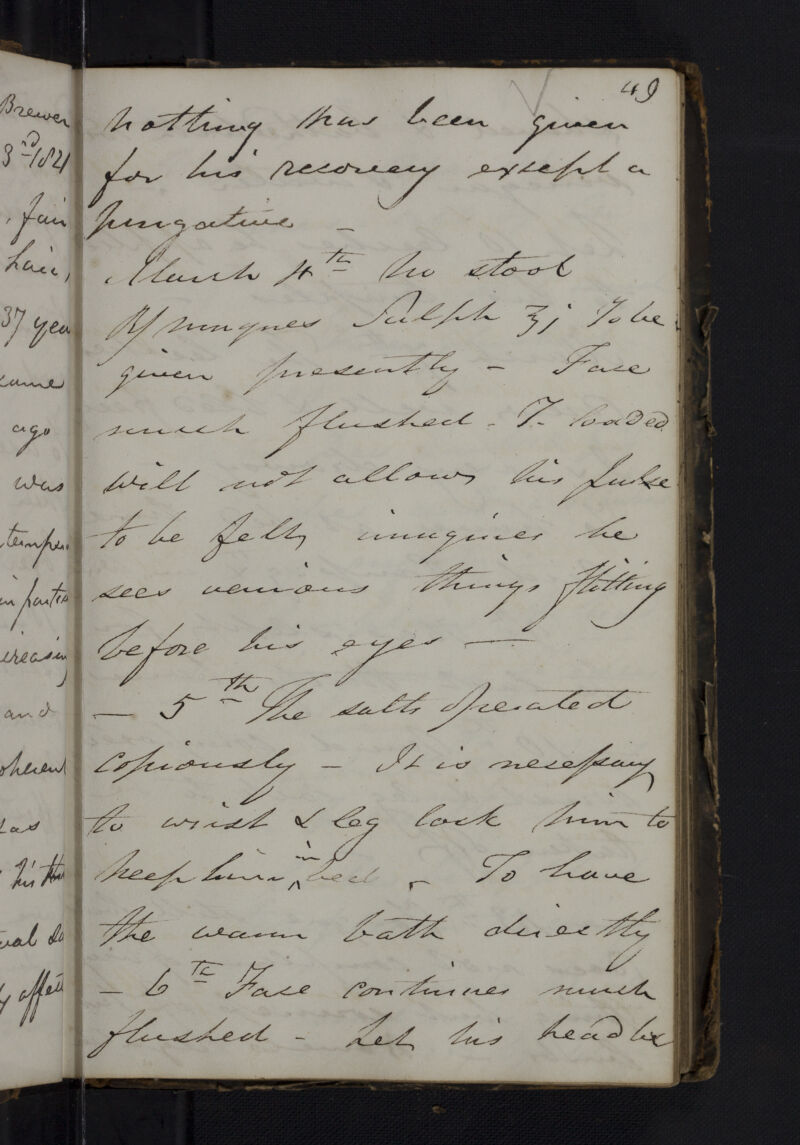 49
nothing has been given
for his recovery except a
purgative —
March 4th No stool
℞ Magnes Sulph ℥j To be
given presently – Face
much flushed – T. loaded
will not allow his pulse
to be felt, imagines he
sees various things flitting
before his eyes —
— 5th The salts operated
copiously – It is necessary
to wrist & leg lock him to
keep him in bed – To have
the warm bath directly
– 6th Face continues much
flushed – Let his head be
Brewer
3rd 1821
, fair
hair,
37 yea
came
ago
was
tempe
in partic
creasing
and
oherent
has
his
y affect